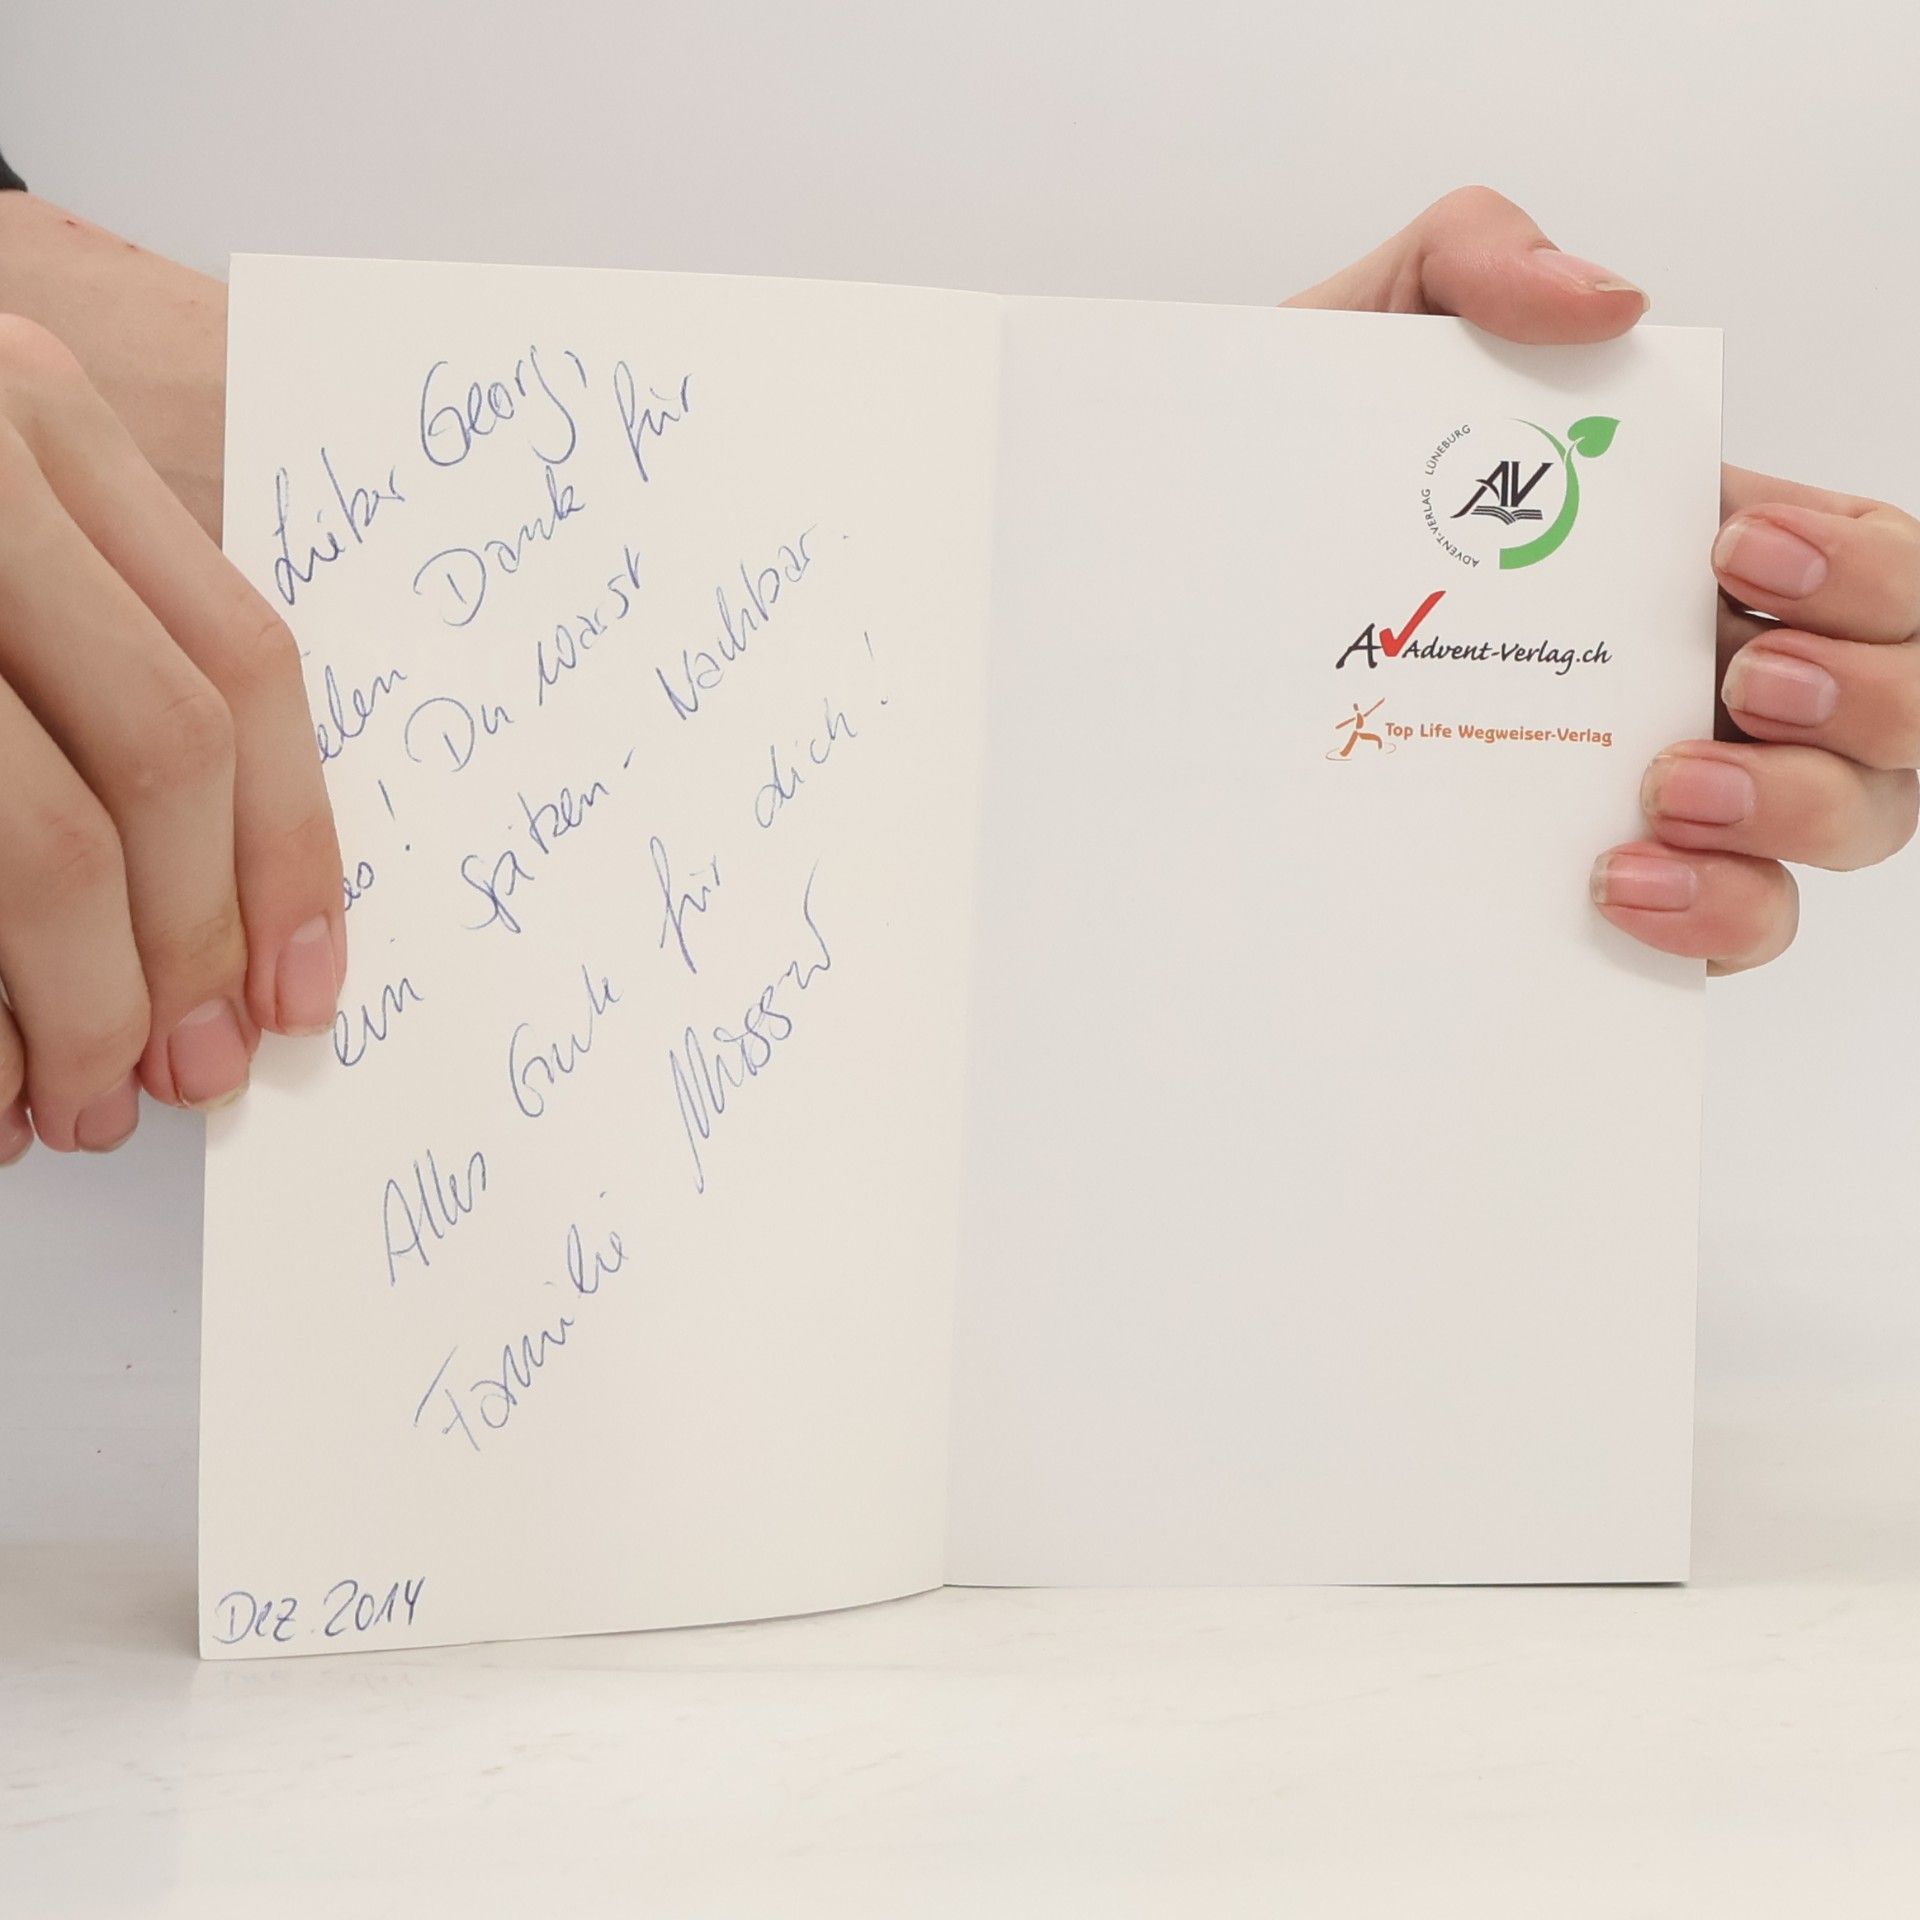 Lieber Georg,
elen Dank für
es! Du warst
ein Spitzen-Nachbar.
Alles Gute für dich!
Familie
Dez. 2014
ADVENT-VERLAG LÜNEBURG
AV
AV Advent-Verlag.ch
Top Life Wegweiser-Verlag